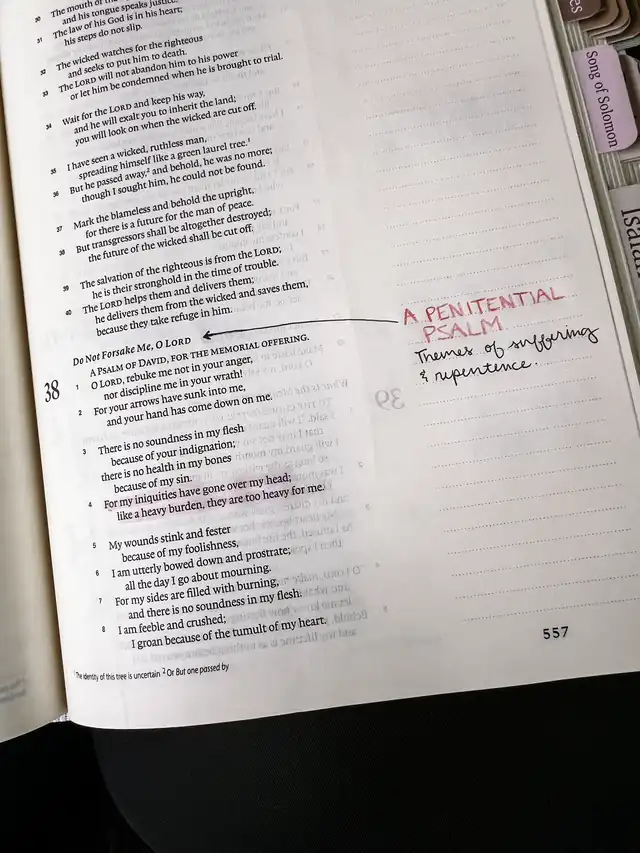 30 The mouth of the
and his tongue speaks justice.
31 The law of his God is in his heart;
his steps do not slip.
32 The wicked watches for the righteous
and seeks to put him to death.
33 The LORD will not abandon him to his power
or let him be condemned when he is brought to trial.
34 Wait for the LORD and keep his way,
and he will exalt you to inherit the land;
you will look on when the wicked are cut off.
35 I have seen a wicked, ruthless man,
spreading himself like a green laurel tree.¹
36 But he passed away,² and behold, he was no more;
though I sought him, he could not be found.
37 Mark the blameless and behold the upright,
for there is a future for the man of peace.
38 But transgressors shall be altogether destroyed;
the future of the wicked shall be cut off.
39 The salvation of the righteous is from the LORD;
he is their stronghold in the time of trouble.
40 The LORD helps them and delivers them;
he delivers them from the wicked and saves them,
because they take refuge in him.
Do Not Forsake Me, O LORD
38 A PSALM OF DAVID, FOR THE MEMORIAL OFFERING.
1 O LORD, rebuke me not in your anger,
nor discipline me in your wrath!
2 For your arrows have sunk into me,
and your hand has come down on me.
3 There is no soundness in my flesh
because of your indignation;
there is no health in my bones
because of my sin.
4 For my iniquities have gone over my head;
like a heavy burden, they are too heavy for me.
5 My wounds stink and fester
because of my foolishness,
6 I am utterly bowed down and prostrate;
all the day I go about mourning.
7 For my sides are filled with burning,
and there is no soundness in my flesh.
8 I am feeble and crushed;
I groan because of the tumult of my heart.
¹ The identity of this tree is uncertain ² Or But one passed by
A PENITENTIAL
PSALM
Themes of suffering
& repentence.
557
Song of Solomon
Isaiah